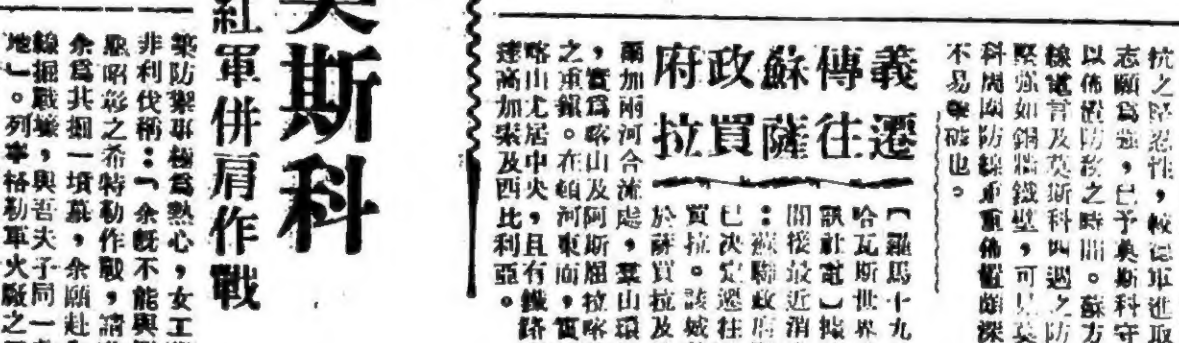 抗之堅忍性，較德軍進取
志願爲強，已予莫斯科守
以佈置防務之時間。蘇方
線電音及莫斯科四週之防
堅強如銅牆鐵壁，可見莫
科周圍防線重重佈置頗深
不易擊破也。
義傳蘇政府
遷往薩買拉
〔羅馬十九
哈瓦斯世界
訊社電〕據
間接最近消
：蘇聯政府
已決定遷往
買拉。該城
於薩買拉及
爾加兩河合流處，羣山環
，實爲略山及阿斯屈拉略
之重鎮。在頓河東面，實
略山尤居中央，且有鐵路
達高加索及西比利亞。
莫斯科
紅軍併肩作戰
築防禦事極爲熱心，女工
非利伐稱：「余旣不能與
昭彰之希特勒作戰，請
余爲其掘一墳墓，余願赴
線掘戰壕，與吾夫子同一
地」。列寧格勒軍火廠之